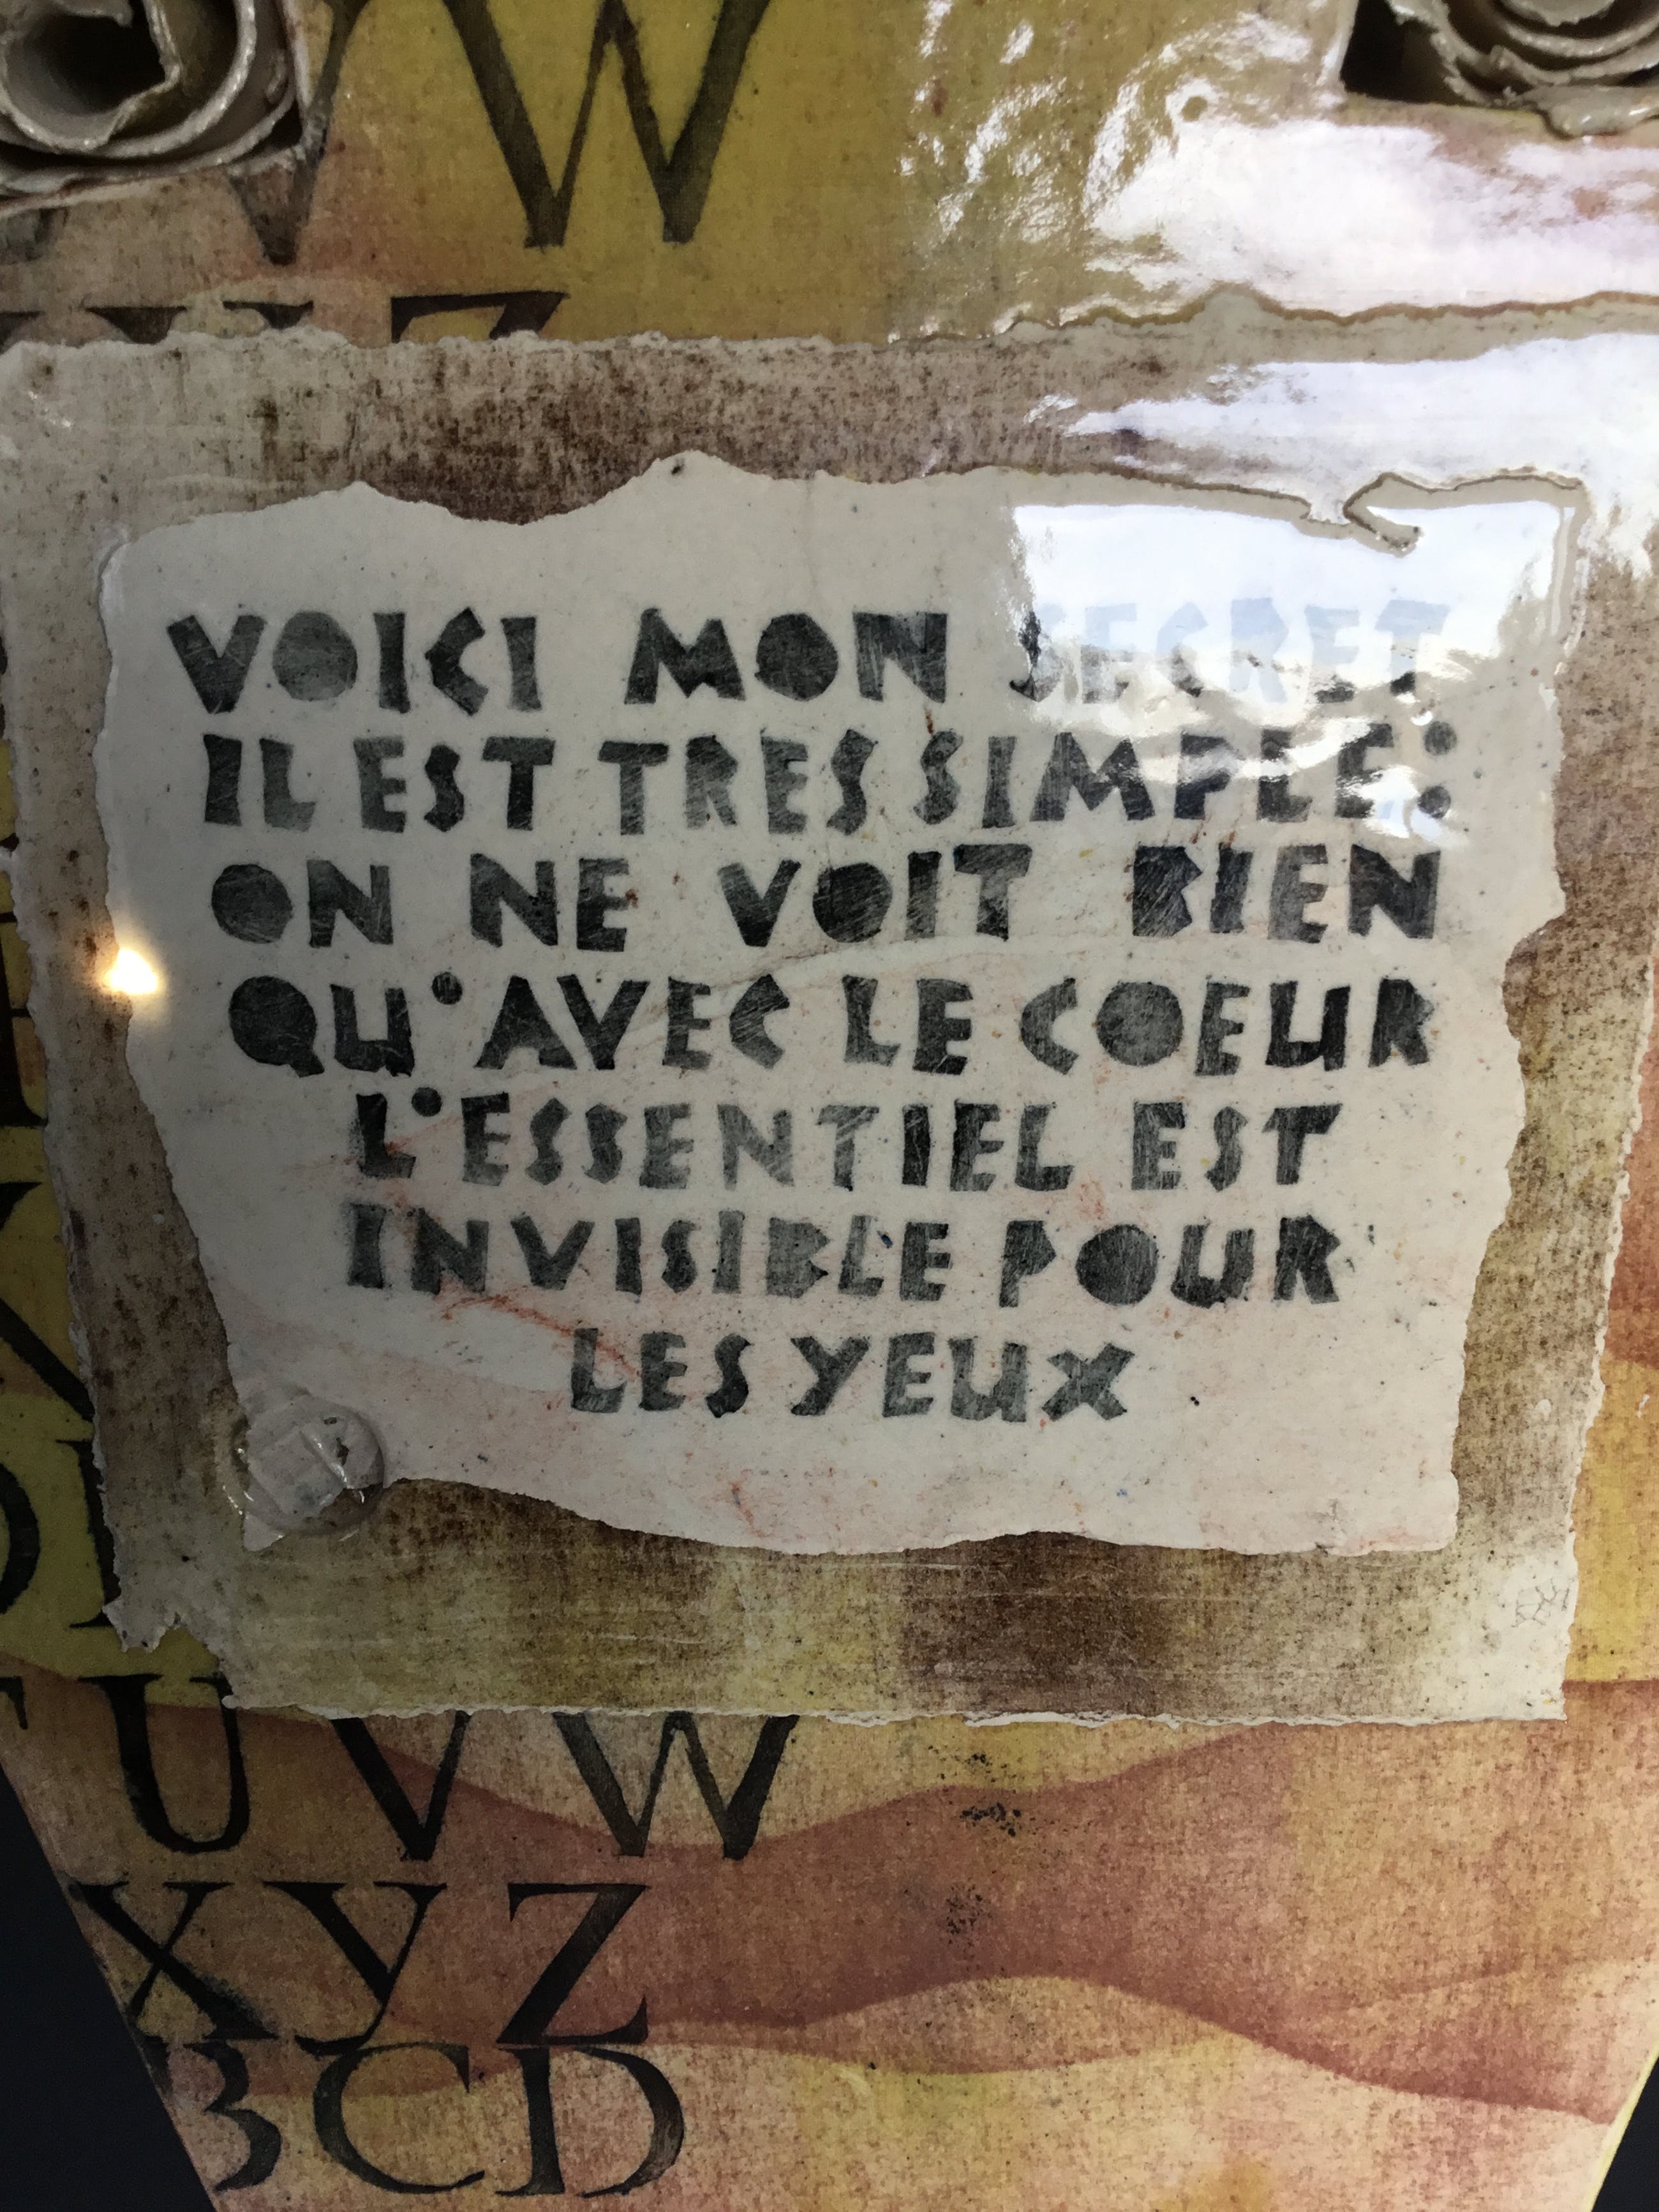 V W
Z
VOICI MON SECRET
IL EST TRES SIMPLE:
ON NE VOIT BIEN
QU'AVEC LE COEUR
L'ESSENTIEL EST
INVISIBLE POUR
LES YEUX
U V W
X Y Z
B C D